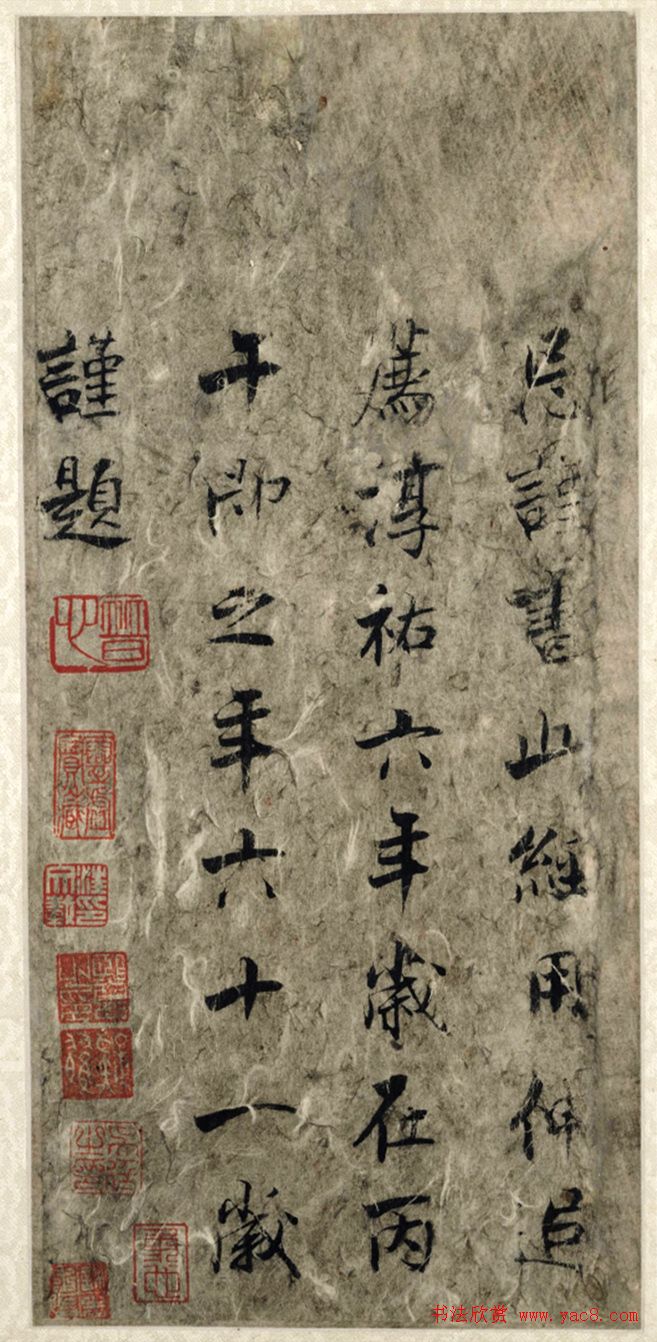 恩謹書此經用伸追
薦淳祐六年歲在丙
午即之年六十一歲
謹題
书法欣赏 www.yac8.com